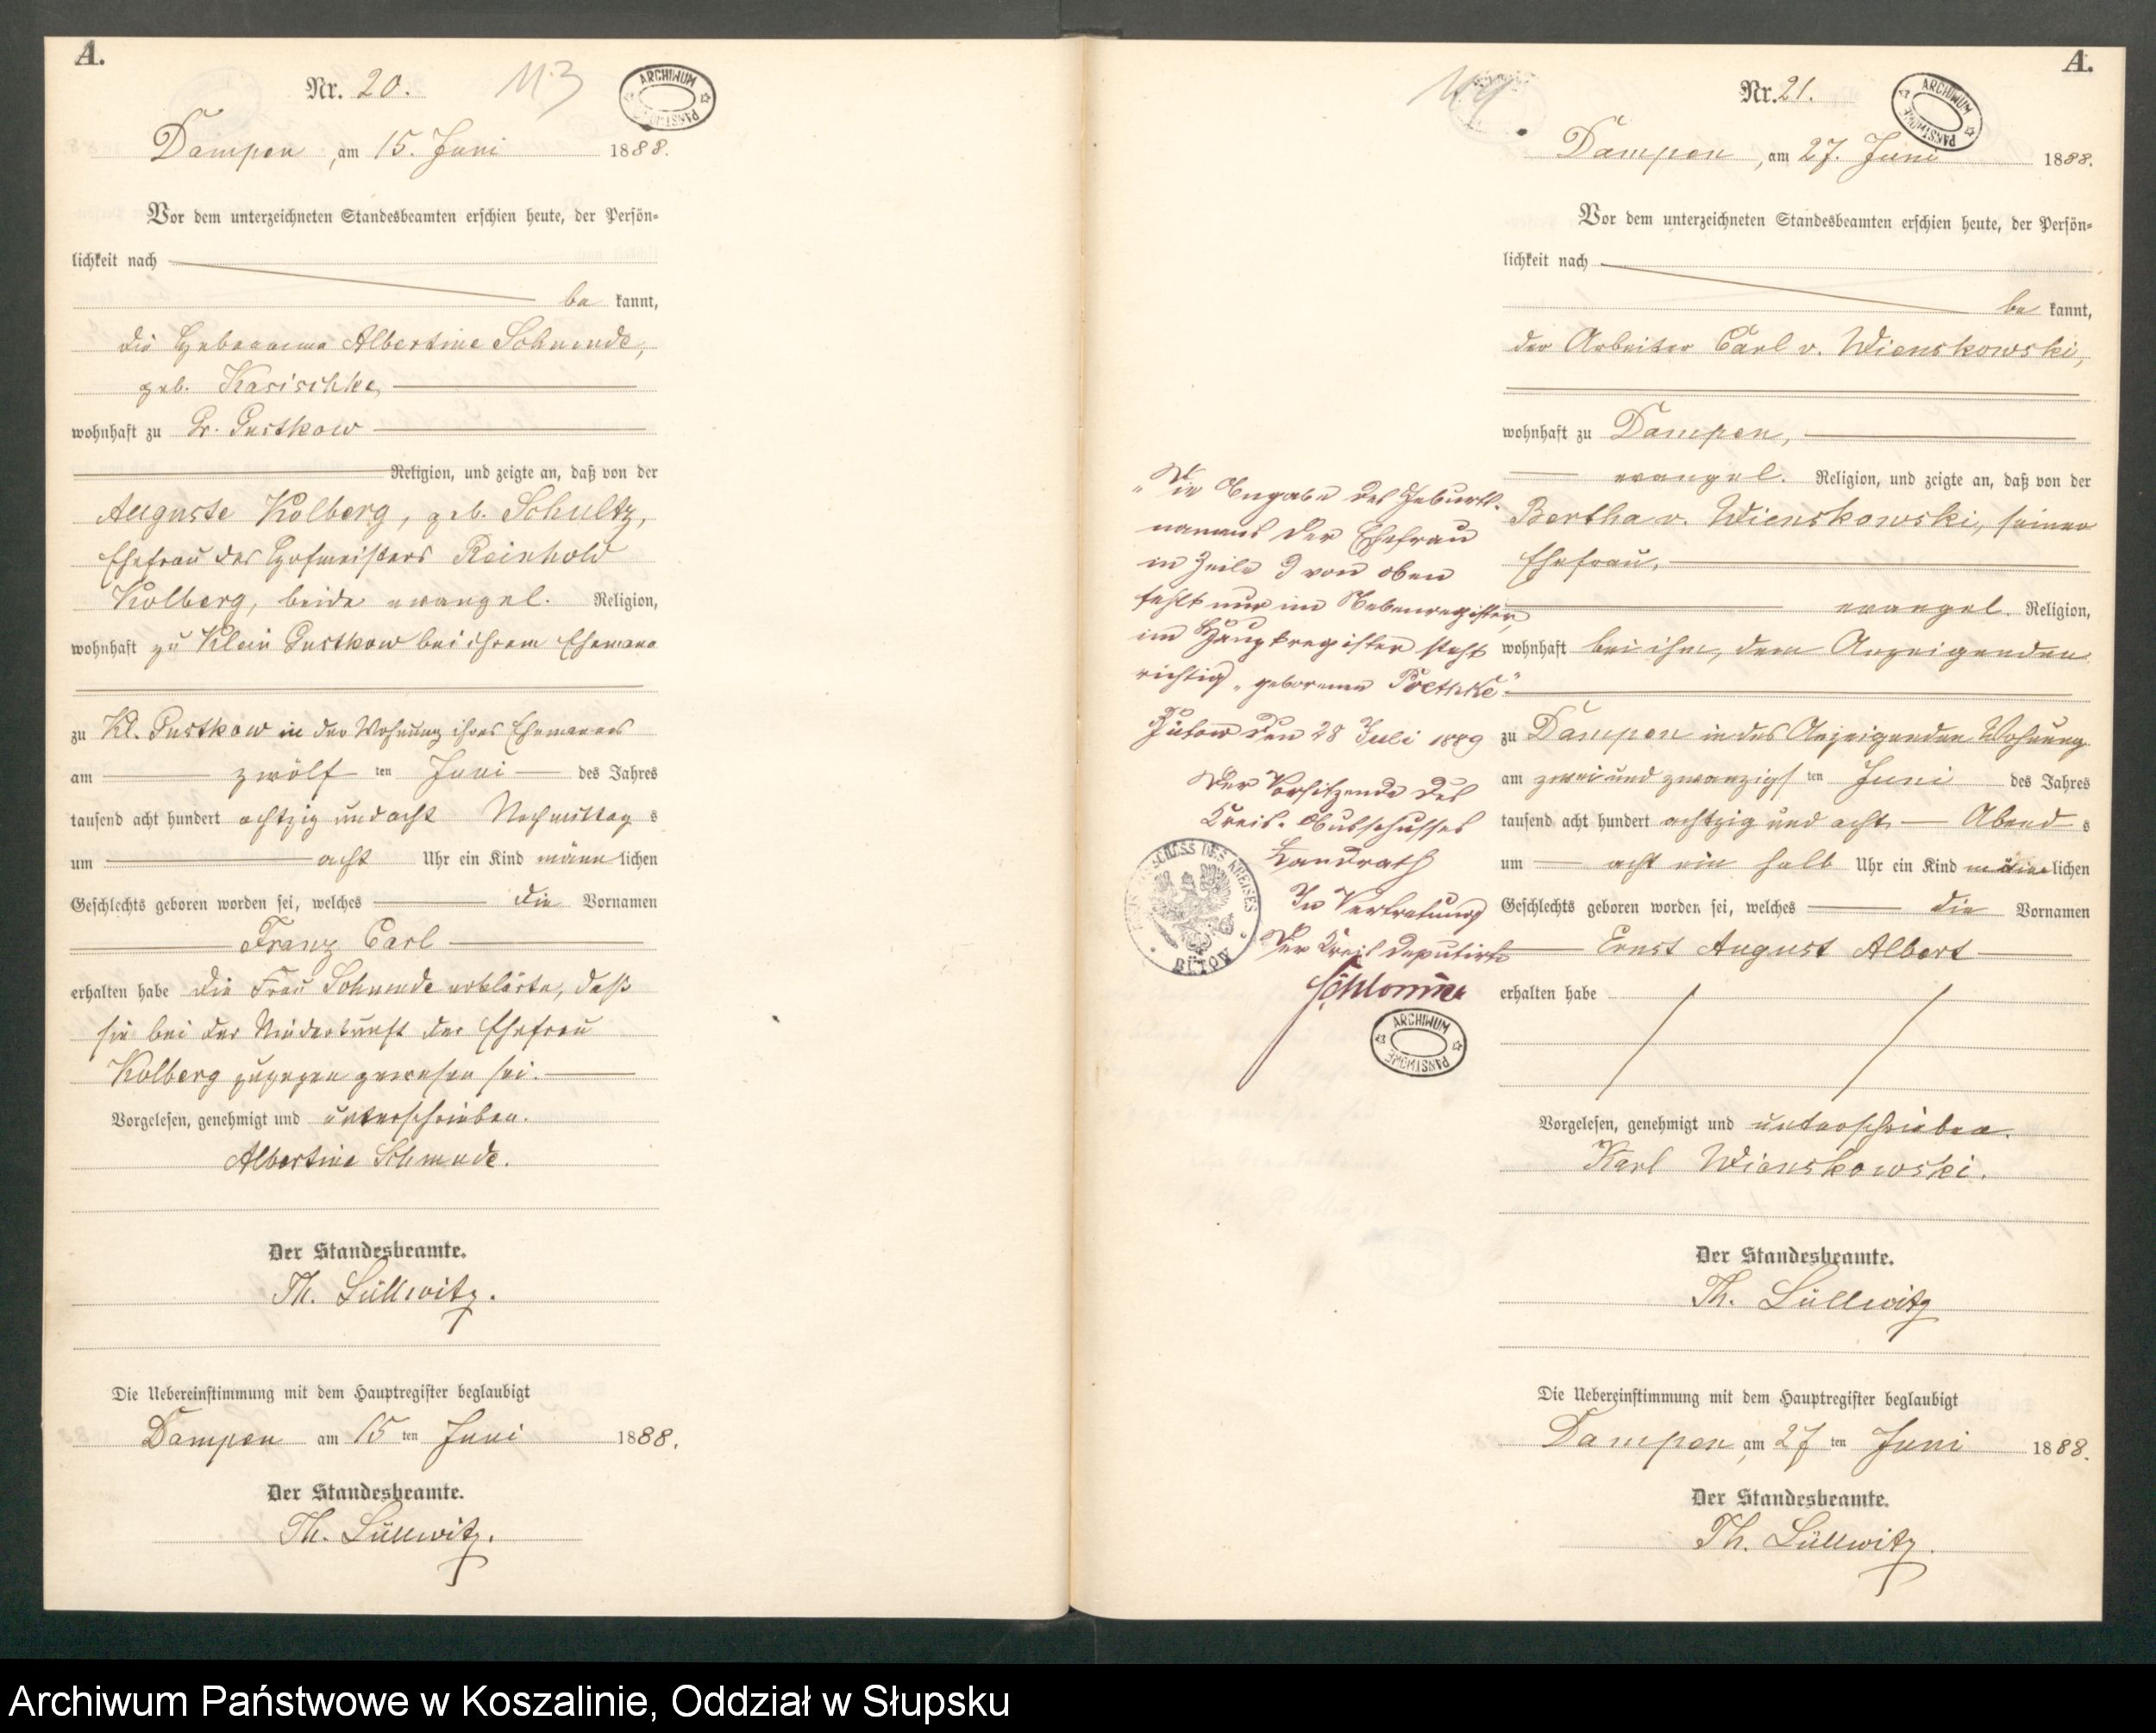 A.
Nr. 20.
113
ARCHIWUM PAŃSTWOWE
Dampen, am 15. Juni 1888.
Vor dem unterzeichneten Standesbeamten erschien heute, der Persön-
lichkeit nach
be kannt,
die Hebeamme Albertine Schmude,
geb. Kasischke,
wohnhaft zu Gr. Gustkow
Religion, und zeigte an, daß von der
Auguste Kolberg, geb. Schultz,
Ehefrau des Hofmeisters Reinhold
Kolberg, beide evangel. Religion,
wohnhaft zu Klein Gustkow bei ihrem Ehemann
zu Kl. Gustkow in der Wohnung ihres Ehemannes
am zwölf ten Juni des Jahres
tausend acht hundert achtzig und acht Nachmittag s
um acht Uhr ein Kind männ lichen
Geschlechts geboren worden sei, welches die Vornamen
Franz Carl
erhalten habe die Frau Schmude erklärte, daß
sie bei der Niederkunft der Ehefrau
Kolberg zugegen gewesen sei.
Vorgelesen, genehmigt und unterschrieben.
Albertine Schmude.
Der Standesbeamte.
Th. Lüllwitz.
Die Uebereinstimmung mit dem Hauptregister beglaubigt
Dampen am 15 ten Juni 1888.
Der Standesbeamte.
Th. Lüllwitz.
A.
Nr. 21.
ARCHIWUM PAŃSTWOWE
Dampen, am 27. Juni 1888.
Vor dem unterzeichneten Standesbeamten erschien heute, der Persön-
lichkeit nach
be kannt,
der Arbeiter Carl v. Wienskowski,
wohnhaft zu Dampen,
evangel. Religion, und zeigte an, daß von der
Bertha v. Wienskowski, seiner
Ehefrau,
evangel. Religion,
wohnhaft bei ihm, dem Anzeigenden
zu Dampen in des Anzeigenden Wohnung
am zwei und zwanzigs ten Juni des Jahres
tausend acht hundert achtzig und acht Abend s
um acht ein halb Uhr ein Kind männ lichen
Geschlechts geboren worden sei, welches die Vornamen
Ernst August Albert
erhalten habe
Vorgelesen, genehmigt und unterschrieben.
Karl Wienskowski.
Der Standesbeamte.
Th. Lüllwitz
Die Uebereinstimmung mit dem Hauptregister beglaubigt
Dampen, am 27 ten Juni 1888.
Der Standesbeamte.
Th. Lüllwitz.
„Die Angabe des Geburts-
namens der Ehefrau
in Zeile 9 von oben
fehlt nur im Nebenregister,
im Hauptregister steht
richtig „geborenen Poethke“.
Bütow den 28 Juli 1889
Der Vorsitzende des
Kreis-Ausschusses
Landrath
In Vertretung
Der Kreis Deputirte
AUSSCHUSS DES KREISES BÜTOW
ARCHIWUM PAŃSTWOWE
Archiwum Państwowe w Koszalinie, Oddział w Słupsku